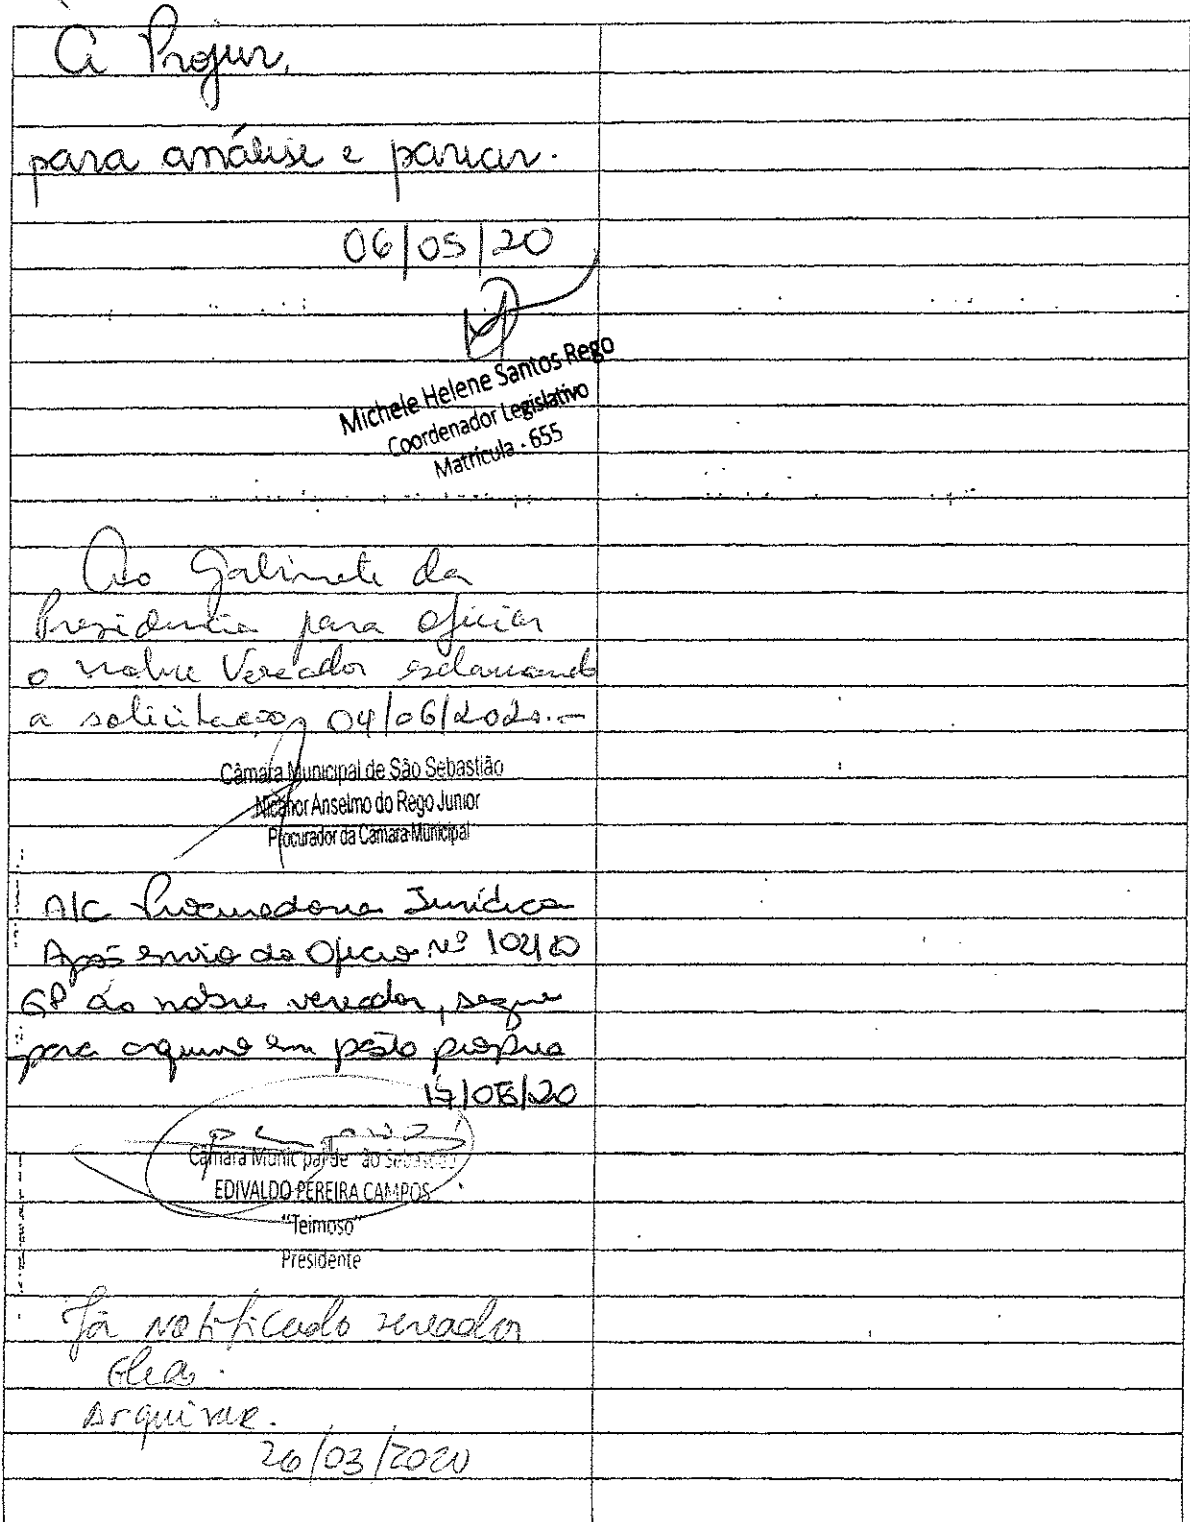 À Projur,
para análise e parecer.
06/05/20
Michele Helene Santos Rego
Coordenador Legislativo
Matrícula - 655
Ao Gabinete da
Presidencia para oficiar
o nobre Vereador esclarecendo
a solicitação, 04/06/2020.-
Câmara Municipal de São Sebastião
Nicanor Anselmo do Rego Junior
Procurador da Câmara Municipal
A/C Procuradoria Jurídica
Após envio do Oficio nº
GP ao nobre vereador, segue
para arquivo em pasta própria
Câmara Municipal de São Sebastião
EDIVALDO PEREIRA CAMPOS
"Teimoso"
Presidente
Já notificado vereador
Arquivar.
26/03/2020